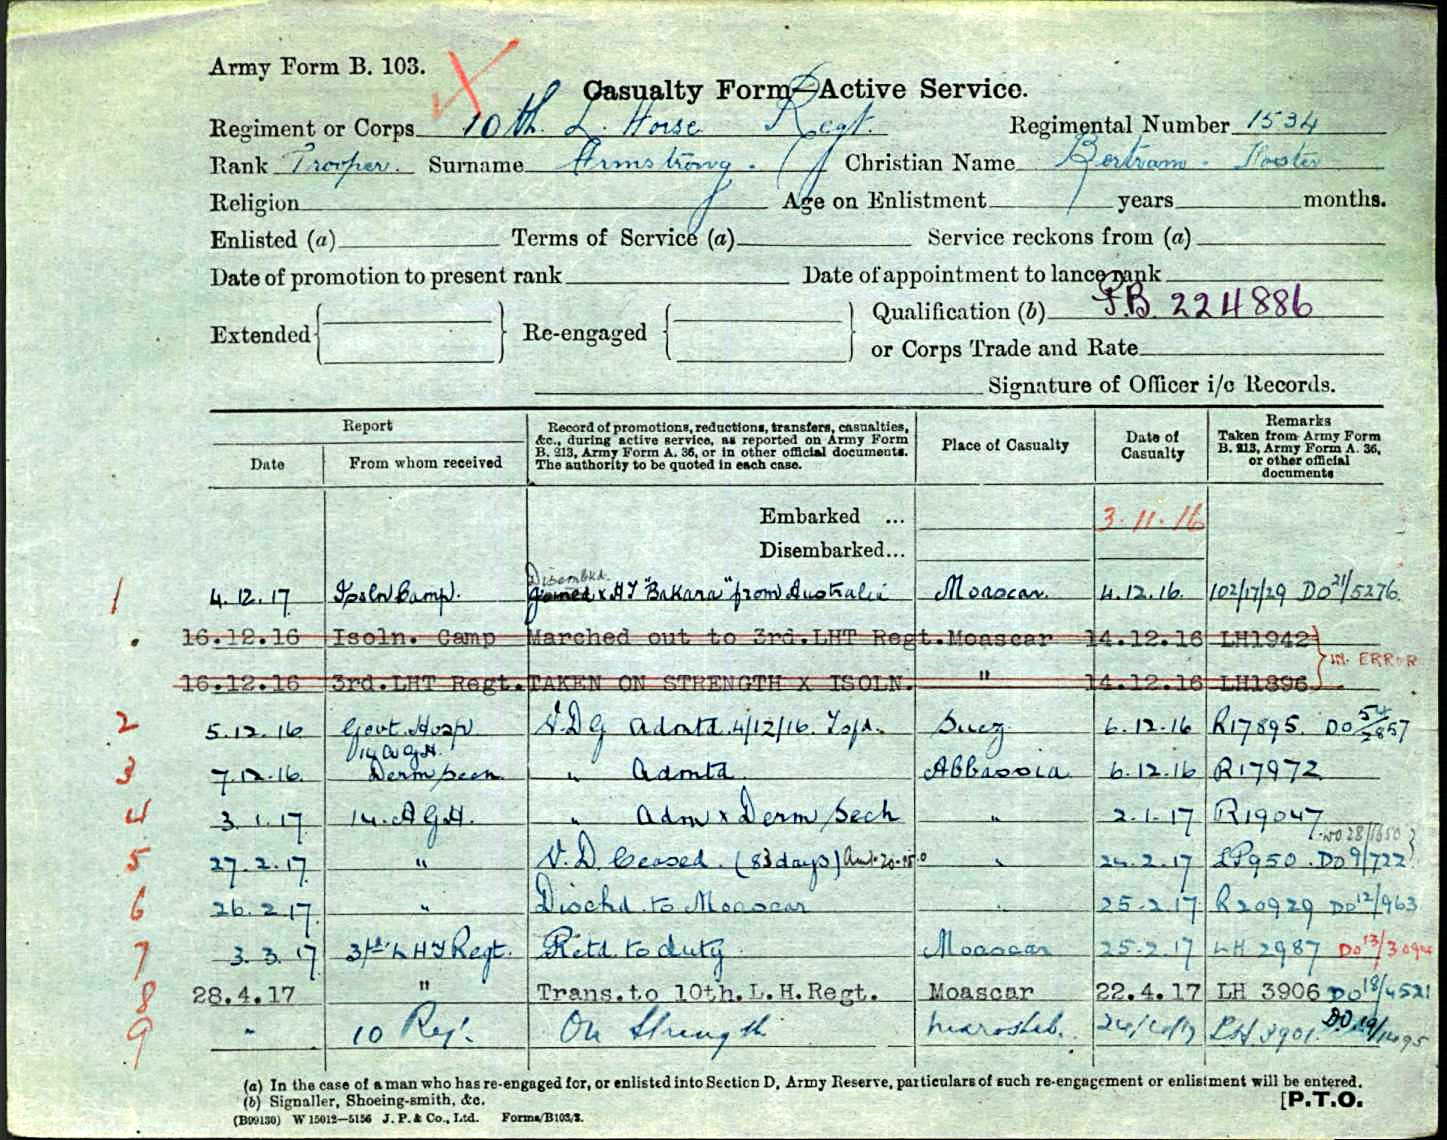 Army Form B. 103.
Casualty Form—Active Service.
Regiment or Corps 10th. L. Horse Regt. Regimental Number 1534
Rank Trooper. Surname Armstrong. Christian Name Bertram
Religion Age on Enlistment years months.
Enlisted (a) Terms of Service (a) Service reckons from (a)
Date of promotion to present rank Date of appointment to lance rank
Qualification (b) P.B. 224886
Extended Re-engaged
or Corps Trade and Rate
Signature of Officer i/c Records.
Report
Date From whom received
Record of promotions, reductions, transfers, casualties,
&c., during active service, as reported on Army Form
B. 213, Army Form A. 36, or in other official documents.
The authority to be quoted in each case.
Place of Casualty
Date of
Casualty
Remarks
Taken from Army Form
B. 213, Army Form A. 36,
or other official
documents
Embarked ... 3.11.16
Disembarked...
Disembkd.
1 4.12.17 Isoln Camp. joined x HT "Bakara" from Australia Moascar 4.12.16. 102/17/29 DO 21/5276
16.12.16 Isoln. Camp Marched out to 3rd.LHT Regt. Moascar 14.12.16 LH1942
IN ERROR
16.12.16 3rd.LHT Regt. TAKEN ON STRENGTH X ISOLN. " 14.12.16 LH1896
2 5.12.16 Govt. Hosp V.D.G Admtd 4/12/16. Suez 6.12.16 R17895. DO 54/2857
14 A.G.H.
3 7.12.16. Derm sech " Admtd Abbassia 6.12.16 R17972
4 3.1.17 14. A.G.H. " Adm x Derm sech " 2.1.17 R19047
5 27.2.17. " V.D. Ceased. (83 days) " 24.2.17 DO 9/722
6 26.2.17. " Dischd. to Moascar 25.2.17 R20929 DO 12/963
7 3.3.17 3rd L H T Regt. Retd. to duty Moascar 25.2.17 LH 2987 DO 13/3094
8 28.4.17 " Trans.to 10th.L.H.Regt. Moascar 22.4.17 LH 3906 DO 18/4521
9 " 10 Reg. On Strength LH 3901. DO 19/1495
(a) In the case of a man who has re-engaged for, or enlisted into Section D, Army Reserve, particulars of such re-engagement or enlistment will be entered.
(b) Signaller, Shoeing-smith, &c.
[P.T.O.
(B99130) W 15012—5156 J. P. & Co., Ltd. Forms/B103/3.